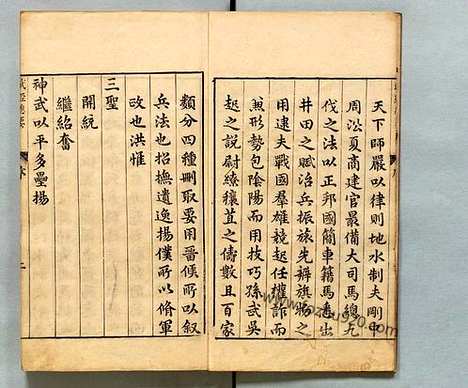 天下師嚴以律則地水制夫剛中
周㳂夏商建官最備大司馬總九
伐之法以正邦國簡車籍馬悉出
井田之賦治兵振旅先辨旗物之
用逮夫戰國羣雄競起任權詐而
兼形勢包陰陽而用技巧孫武吳
起之說尉繚穰苴之儔數且百家
類分四種刪取要用晉侯所以叙
兵法也招撫遺逸揚僕所以脩軍
政也洪惟
三聖
開統
繼紹奮
神武以平多壘揚
武經總要 序 二